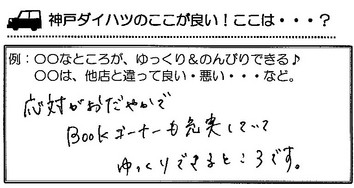 神戸ダイハツのここが良い！ここは・・・？
例：○○なところが、ゆっくり＆のんびりできる♪
○○は、他店と違って良い・悪い・・・など。
応対がおだやかで
Bookコーナーも充実していて
ゆっくりできるところです。